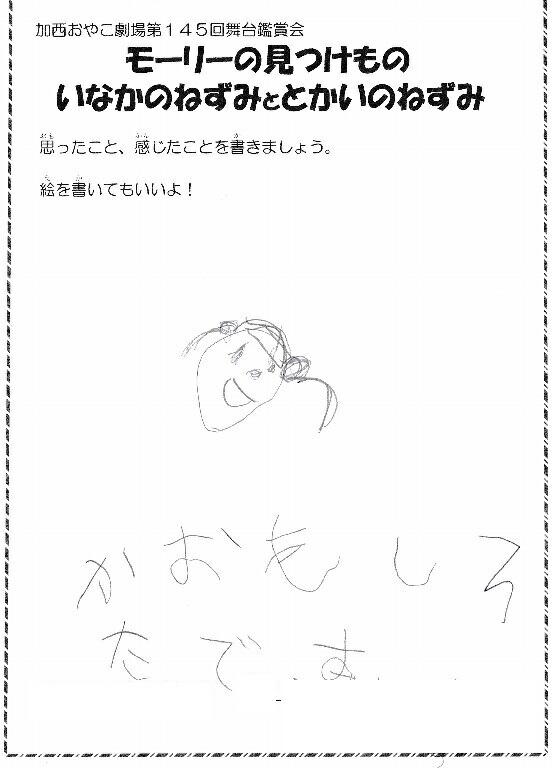 加西おやこ劇場第145回舞台鑑賞会
モーリーの見つけもの
いなかのねずみととかいのねずみ
おも かん か
思ったこと、感じたことを書きましょう。
え か
絵を書いてもいいよ!
かおもしろ
たです..